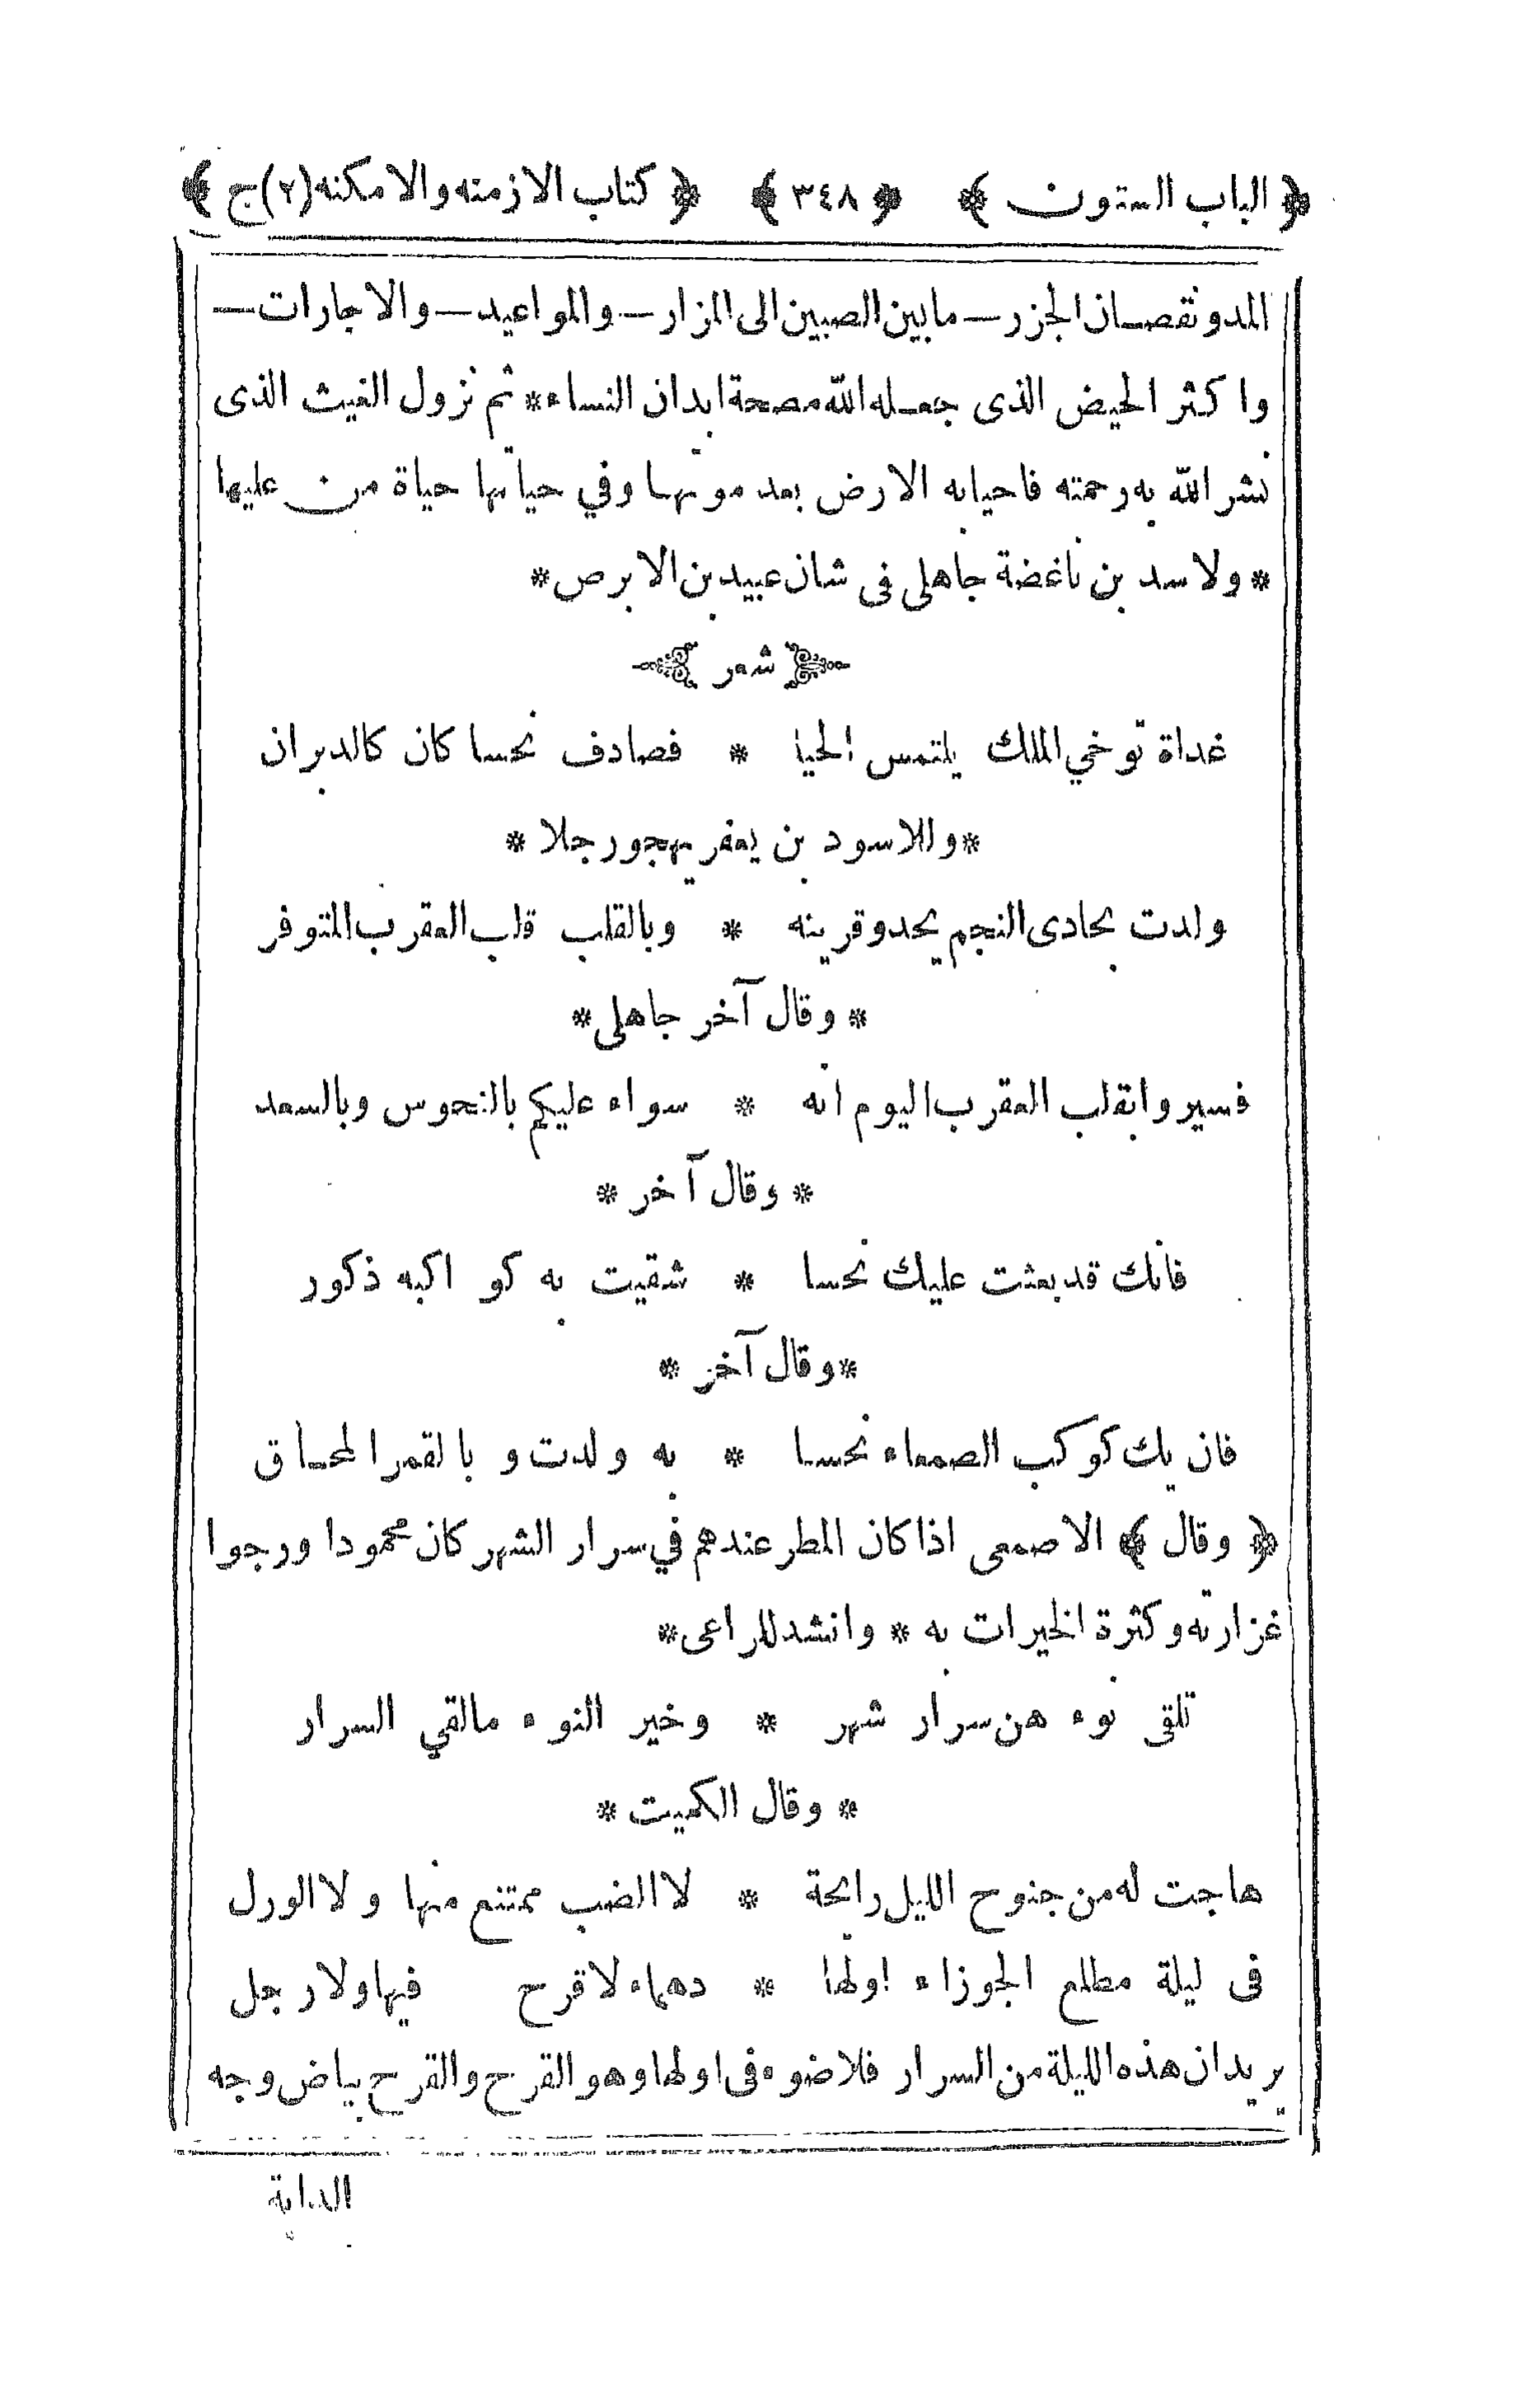 ﴿ الباب الستون ﴾ ﴿ ٣٤٨ ﴾ ﴿ كتاب الازمنه والامكنه (٢) ج ﴾
المد ونقصان الجزر — مابين الصبين الى المزار — والمواعيد — والاجارات —
واكثر الحيض الذى جعله الله مصحة ابدان النساء * ثم نزول الغيث الذى
نشر الله به رحمته فاحيابه الارض بعد موتها وفي حياتها حياة من عليها
* ولاسد بن ناغضة جاهلى فى شان عبيد بن الابرص *
شعر
غداة توخي الملك يلتمس الحيا * فصادف نحسا كان كالدبران
* وللاسود بن يعفر يهجو رجلا *
ولدت بحادى النجم يحدو قرينه * وبالقلب قلب العقرب المتوفر
* وقال آخر جاهلى *
فسيروا بقلب العقرب اليوم انه * سواء عليكم بالنحوس وبالسعد
* وقال آخر *
فانك قد بعثت عليك نحسا * شقيت به كواكبه ذكور
* وقال آخر *
فان يك كوكب الصمعاء نحسا * به ولدت وبالقمر المحاق
﴿ وقال ﴾ الاصمعى اذا كان المطر عندهم في سرار الشهر كان محمودا ورجوا
غزارته وكثرة الخيرات به * وانشد للراعى *
تلقى نوء هن سرار شهر * وخير النوء مالقي السرار
* وقال الكميت *
هاجت له من جنوح الليل رايحة * لا الضب ممتنع منها ولا الورل
فى ليلة مطلع الجوزاء اولها * دهماء لا قرح فيها ولا رجل
يريد ان هذه الليلة من السرار فلاضوء فى اولها وهو القرح والقرح بياض وجه
الدابة